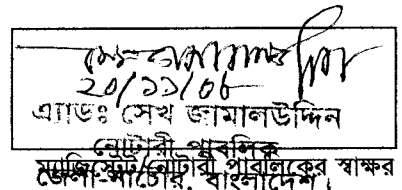 ২০/১১/০৮
এ্যাডঃ সেখ জামালউদ্দিন
নোটারী পাবলিক
ম্যাজিস্ট্রেট/নোটারী পাবলিকের স্বাক্ষর
জেলা-নাটোর, বাংলাদেশ।